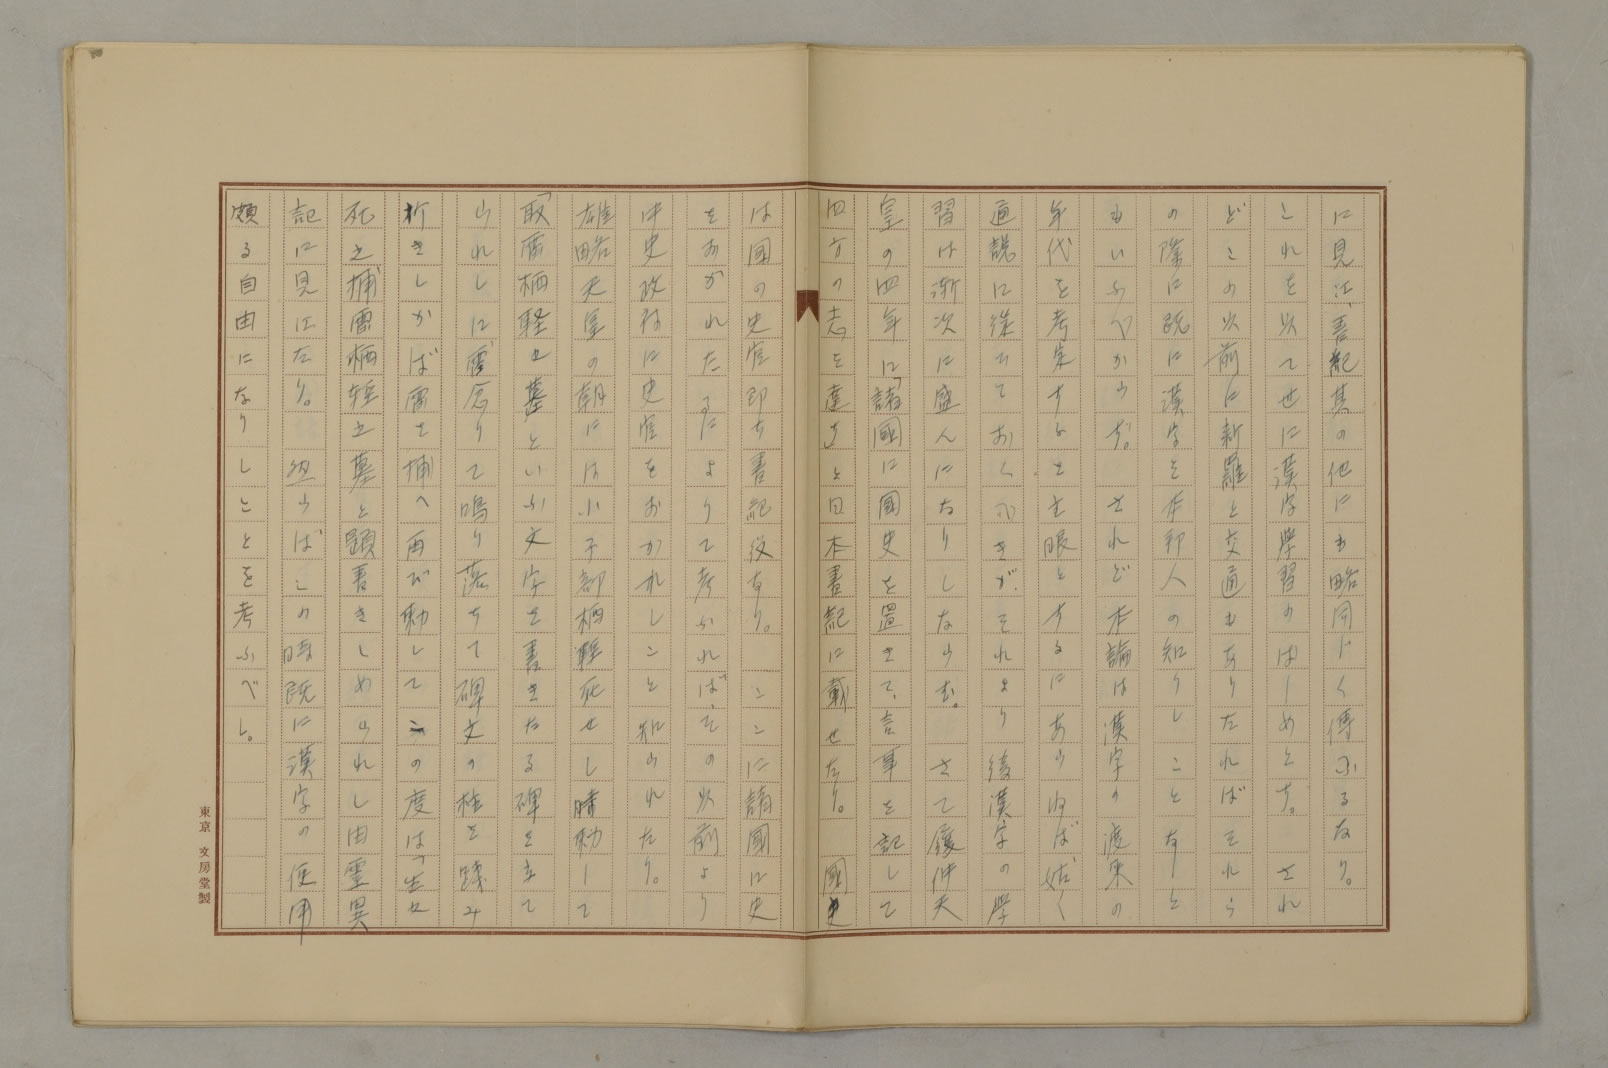 に見え、書紀其の他にも略同じく傳ふるなり。
これを以てせに漢字學習のはしめとす。されど
どこの以前に新羅と交通もありたればそれら
の際に既に漢字を本邦人の知りしことなしと
もいふべからず。されど本論は漢字の渡來の
年代を考案するを主眼とするにあらねば姑く
通説に従ひておくべきが、それより後漢字の學
習は漸次に盛んになりしならむ。さて履仲天
皇の四年に「諸國に國史を置きて、言事を記して
四方の志を達す」と日本書紀に載せたり。國史
は國の史官即ち書紀役なり。ここに諸國に史
をおかれたるによりて考ふれば、その以前より
中史政府に史官をおかれしこと知られたり。
雄略天皇の朝には小子部栖軽死せし時勅して
「取雷栖軽之墓」といふ文字を書きたる碑を立て
られしに雷忿りて鳴り落ちて碑文の柱を踐み
折きしかば雷を捕へ再び勅してこの度は「生々
死之捕雷栖軽之墓」と題書きしめられし由靈異
記に見えたり。然らばこの時既に漢字の使用
頗る自由になりしことを考ふべし。
東京 文房堂製